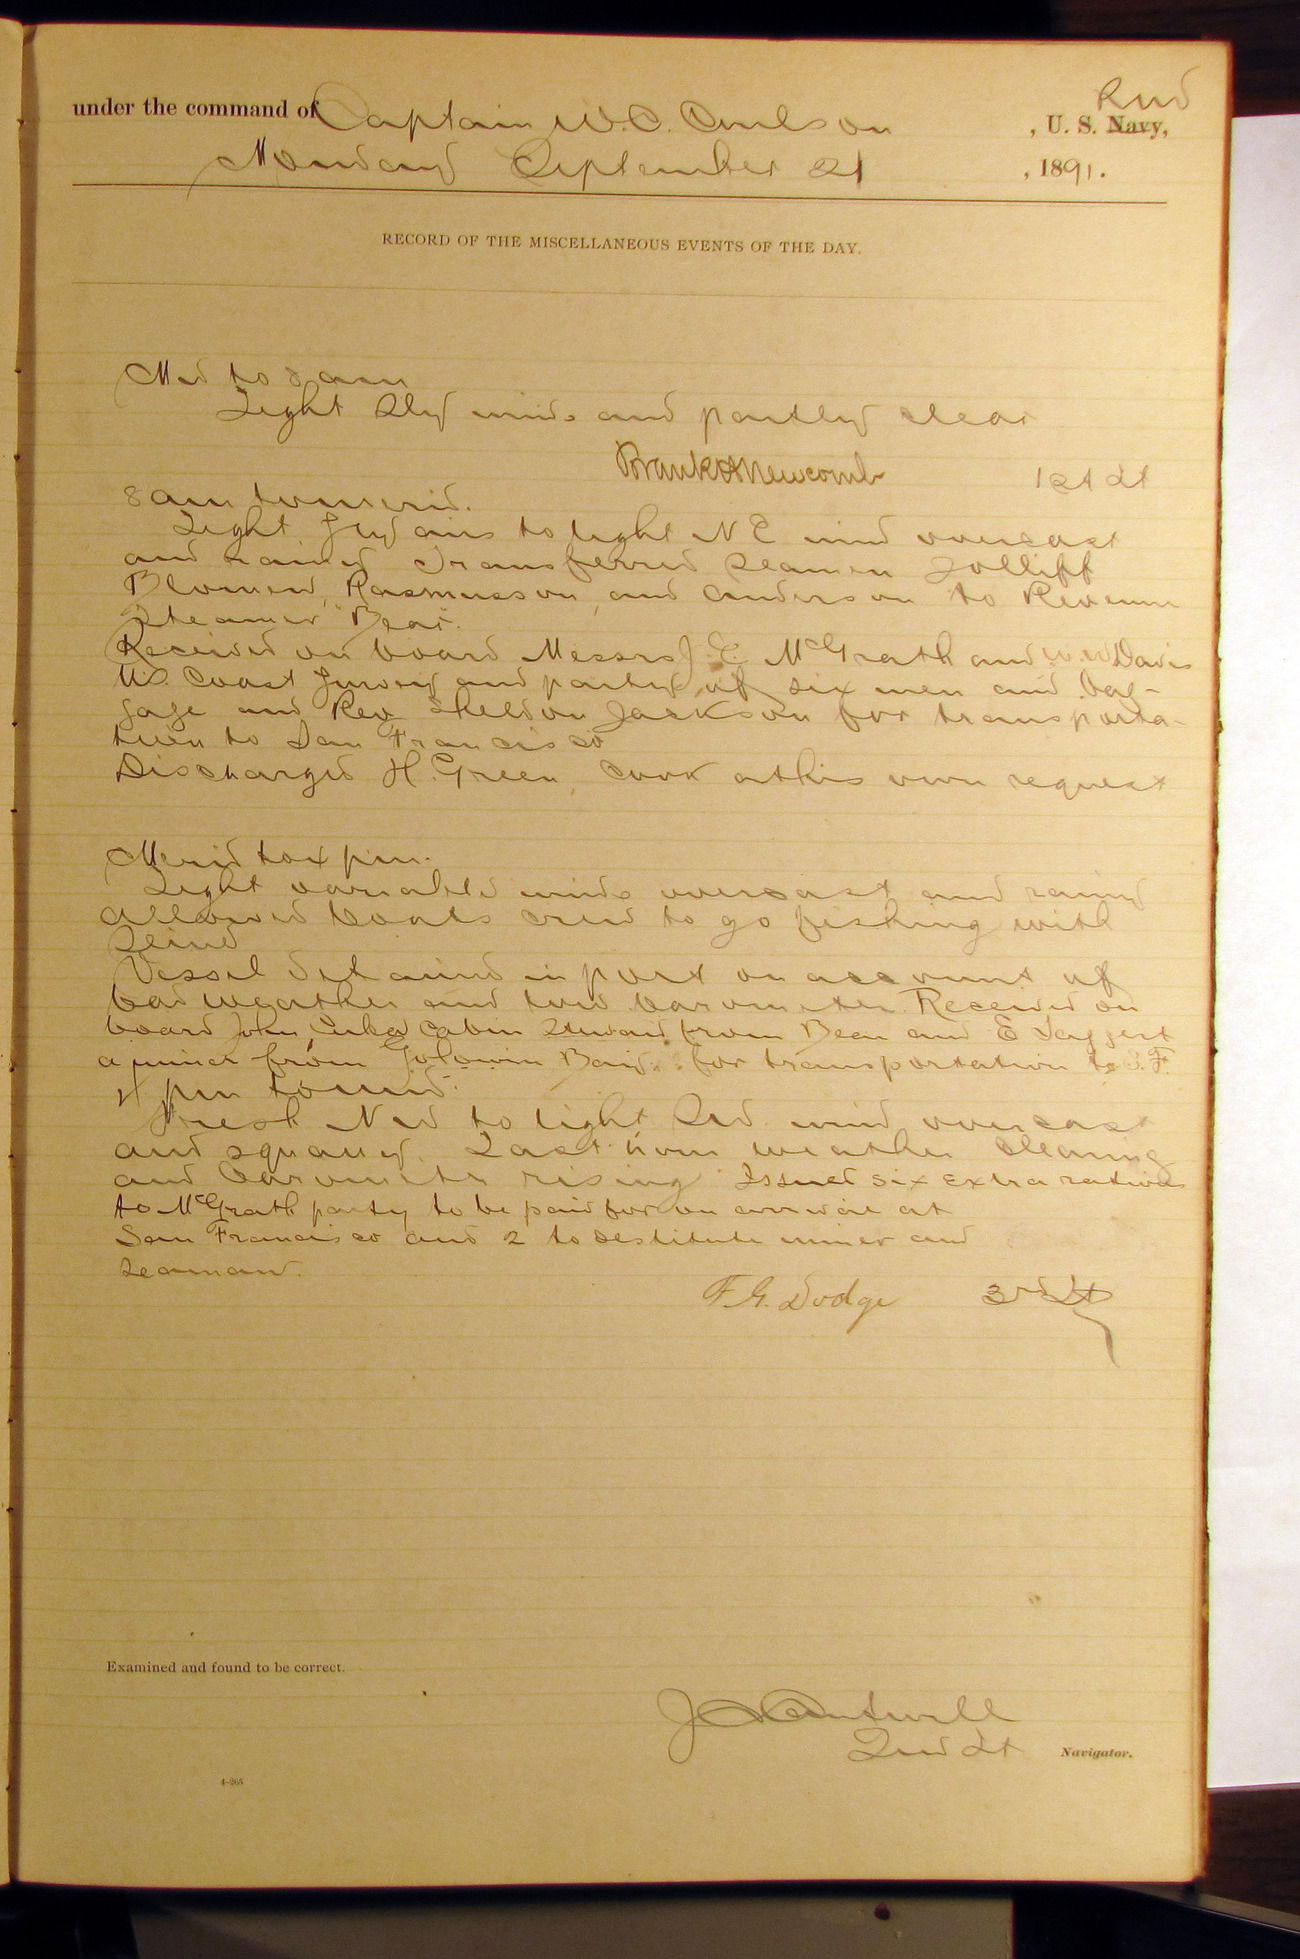 under the command of Captain W.C. Coulson RM
, U. S. Navy,
Monday September 21, 1891.
RECORD OF THE MISCELLANEOUS EVENTS OF THE DAY.
Mid to 8 am
Light Sly winds and partly clear
Frank H Newcomb 1st Lt
8 am to merid.
Light Sly airs to light NE wind overcast
and rainy Transferred Seamen Jolliff
Blomen, Rasmusson, and Anderson to Revenue
Steamer "Bear".
Received on board Messrs J. E. McGrath and W.W Davis
US. Coast Survey and party of six men and bag-
gage and Rev Sheldon Jackson for transporta-
tion to San Francisco
Discharged H. Green, Cook at his own request
Merid to 4 pm.
Light variable winds overcast and rainy
Allowed boats crew to go fishing with
Seine
Vessel detained in port on account of
bad weather and low barometer. Received on
board John Cuba Cabin Steward from Bear and E Taggert
a miner from Golovin Bay for transportation to S.F.
4 pm to mid.
Fresh NW to light Sd. wind overcast
and squally. Last hour weather clearing
and barometer rising Issued six extra rations
to McGrath party to be paid for on arrival at
San Francisco and 2 to destitute miner and
seaman.
F. G. Dodge 3rd Lt
Examined and found to be correct.
J C Cantwell
2nd Lt Navigator.
4-265